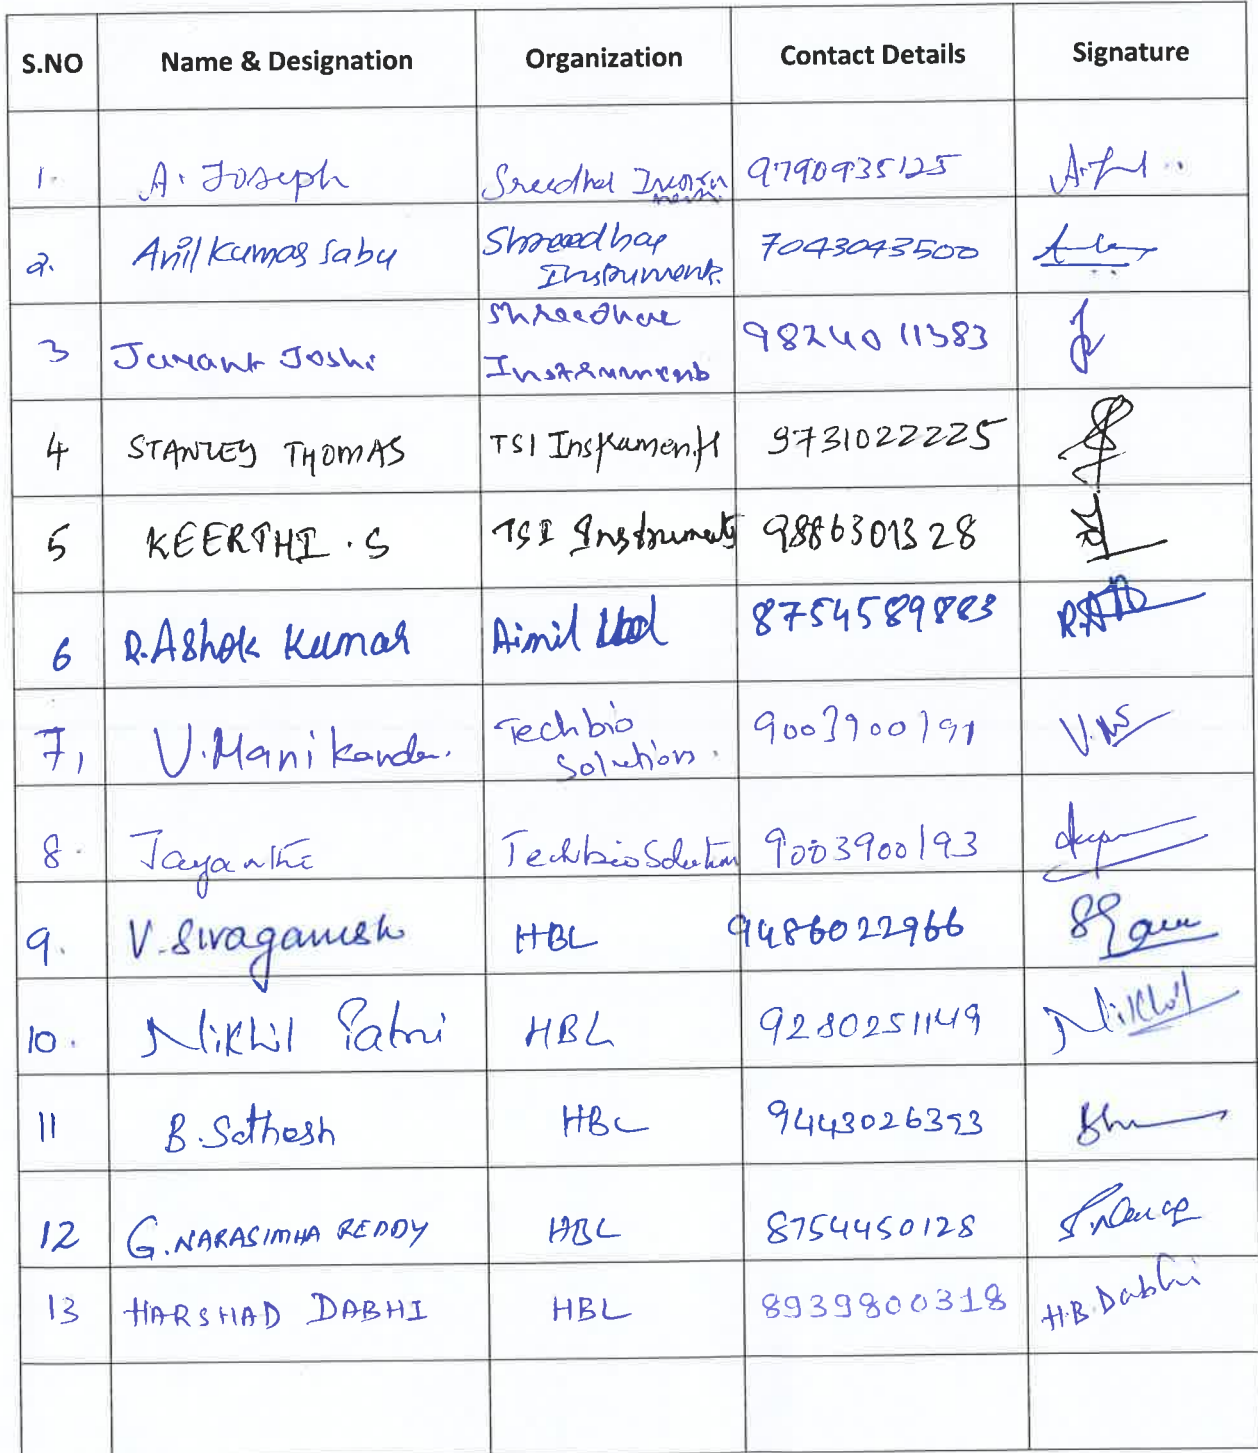 S.NO Name & Designation Organization Contact Details Signature
1. A. Joseph Sreedhar 9790935125
2. Anil Kumar Sabu Shreedhar 7043043500
Instrument.
3 Jayant Joshi Shreedhar 98240 11383
Instruments
4 STANLEY THOMAS TSI Instruments 9731022225
5 KEERTHI . S TSI Instruments 9886301328
6 R. Ashok Kumar Aimil Ltd 8754589883
7, V. Manikandan. Techbio 9003900191
Solution.
8. Jayanthi Techbio Solution 9003900193
9. V. Sivaganesh HBL 9486022966
10. Nikhil Patni HBL 9280251149 Nikhil
11 B. Sathesh HBL 9443026393
12 G. NARASIMHA REDDY HBL 8754450128
13 HARSHAD DABHI HBL 8939800318 H.B. Dabhi